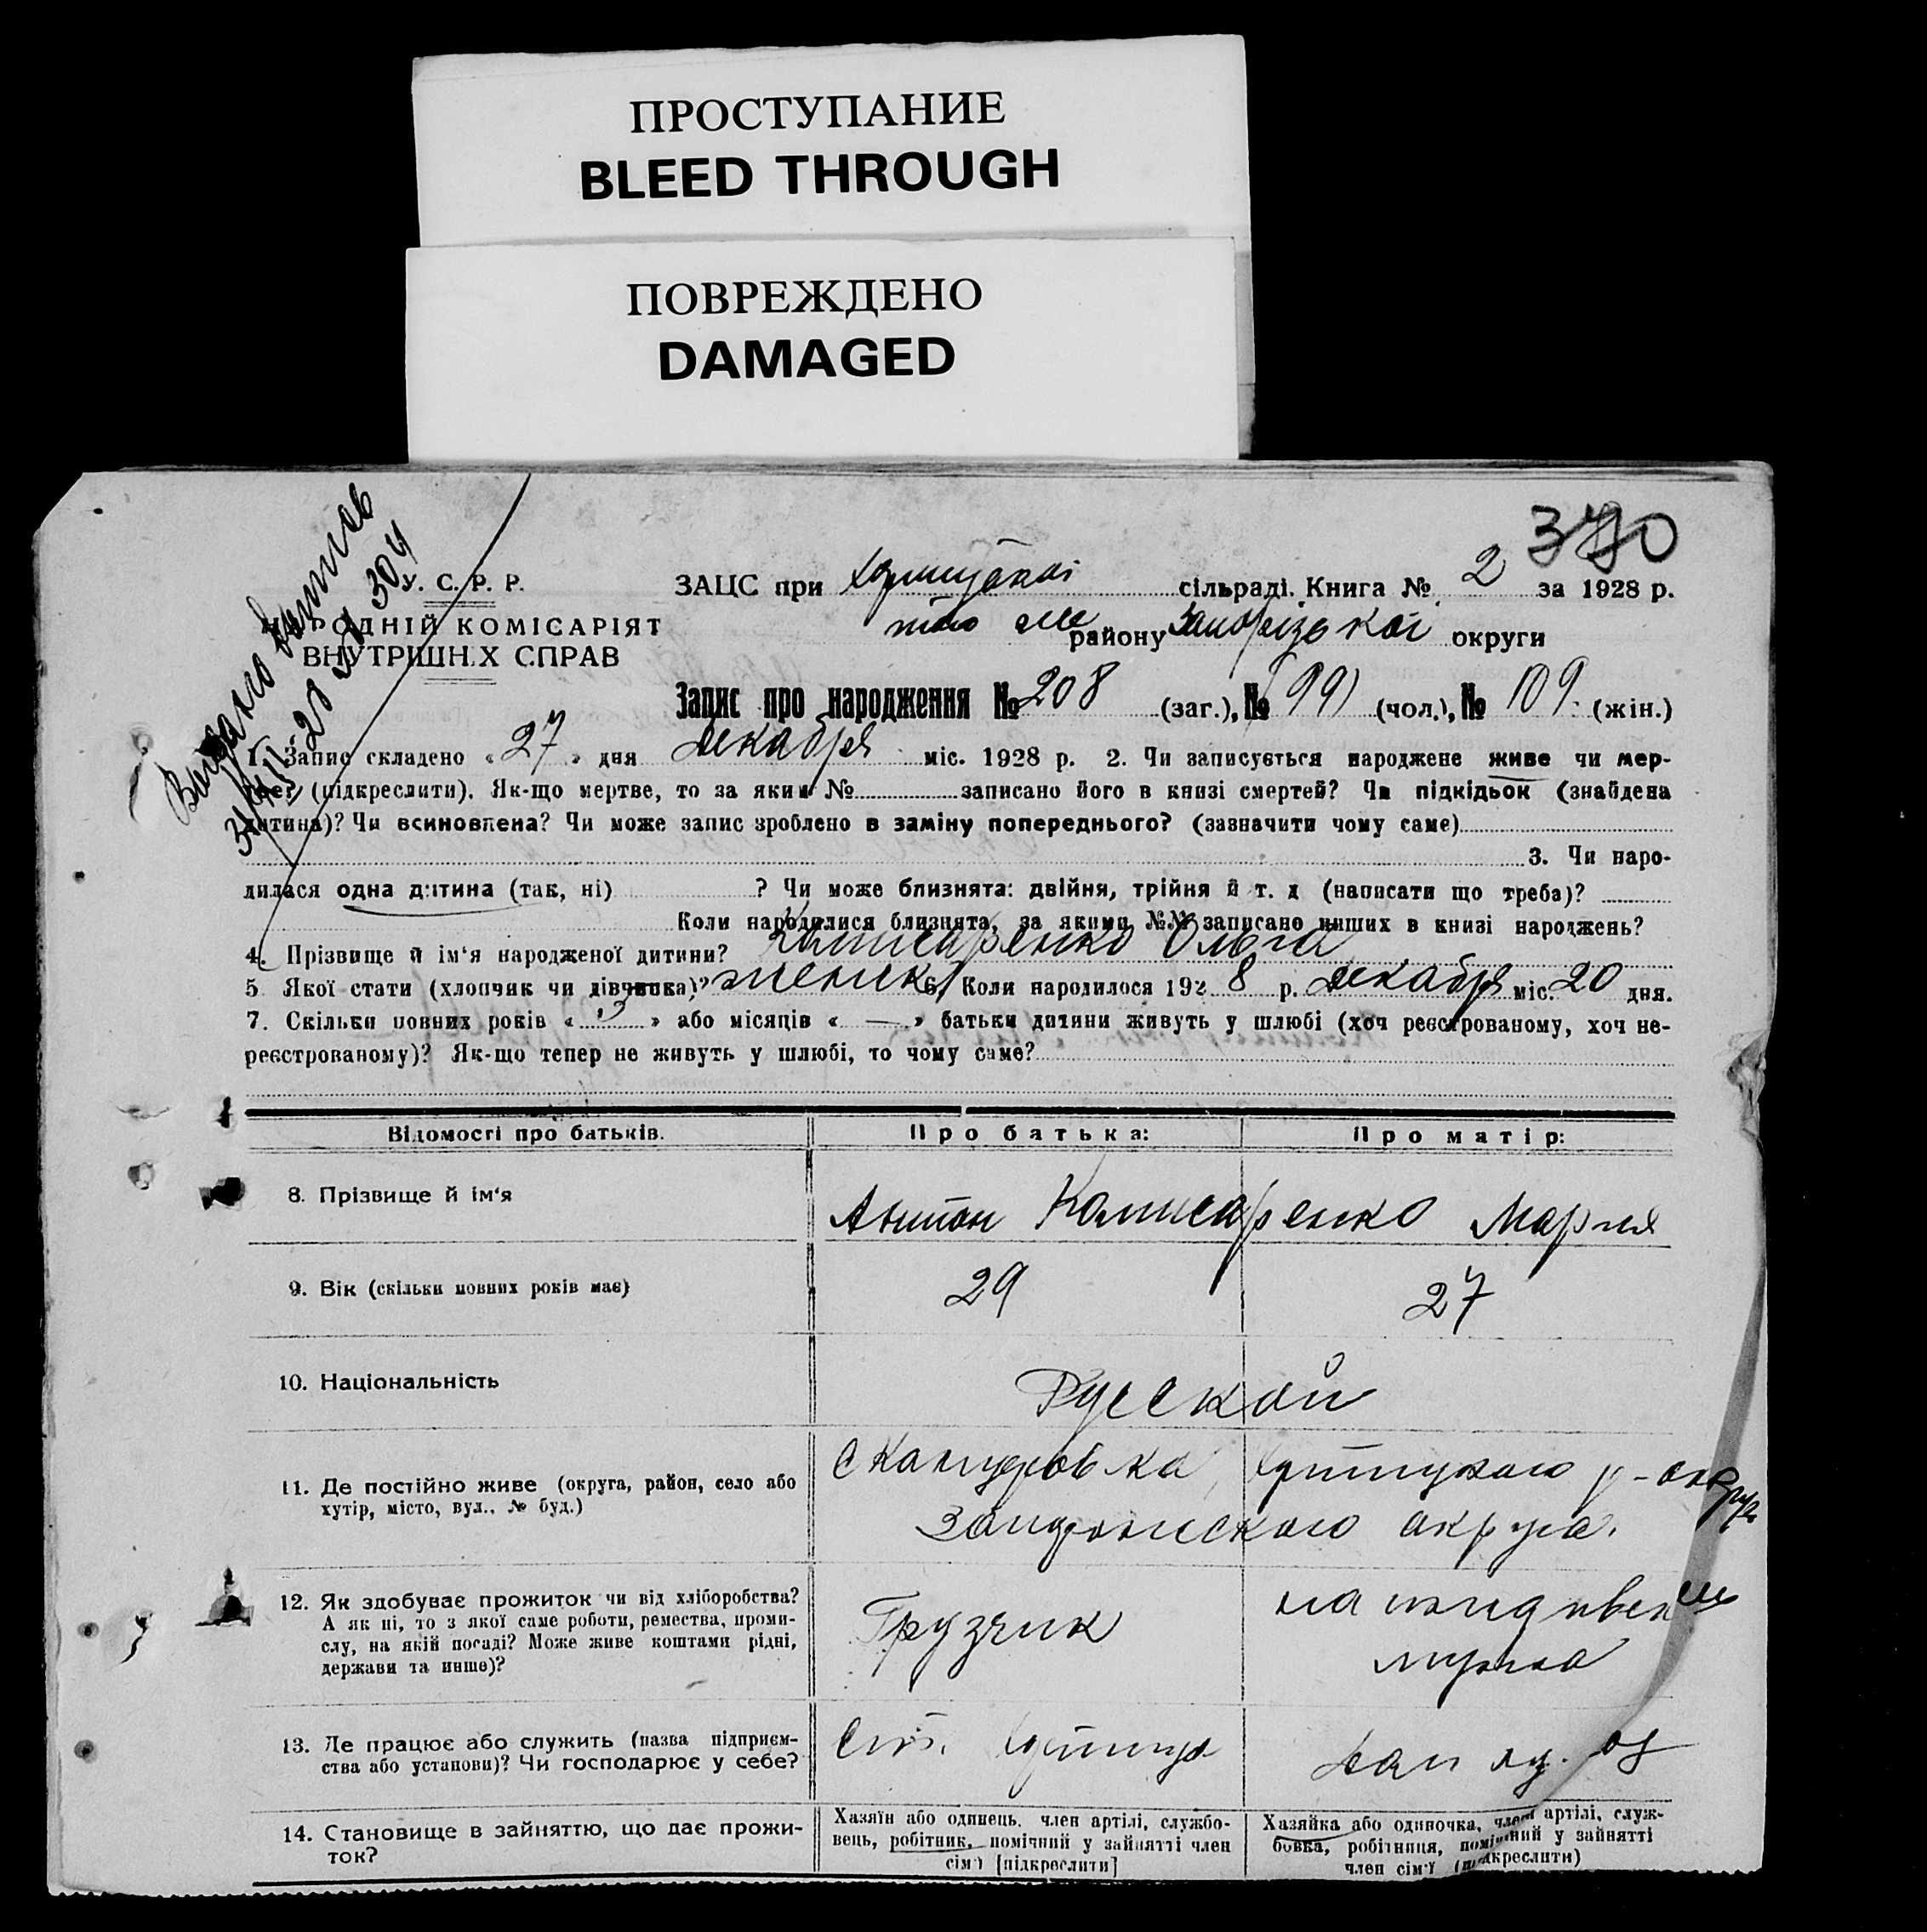 ПРОСТУПАНИЕ
BLEED THROUGH
ПОВРЕЖДЕНО
DAMAGED
370
Видано витись
304
У. С. Р. Р.
НАРОДНІЙ КОМІСАРІЯТ
ВНУТРІШНІХ СПРАВ
ЗАЦС при Хортицької сільраді. Книга № 2 за 1928 р.
того же району Запорізької округи
Запис про народження № 208 (заг.), № 99 (чол.), № 109. (жін.)
1. Запис складено « 27 » дня декабря міс. 1928 р. 2. Чи записується народжене живе чи мер-
тве? (підкреслити). Як-що мертве, то за яким № записано його в книзі смертей? Чи підкідьок (знайдена
дитина)? Чи всиновлена? Чи може запис зроблено в заміну попереднього? (зазначити чому саме)
3. Чи наро-
дилася одна дитина (так, ні) ? Чи може близнята: двійня, трійня й т. д (написати що треба)?
Коли народилися близнята, за якими №№ записано инших в книзі народжень?
4. Прізвище й ім'я народженої дитини? Комисаренко Ольга
5 Якої стати (хлопчик чи дівчинка)? женск 6. Коли народилося 192 8 р. декабря міс. 20 дня.
7. Скільки повних років « 3 » або місяців « — » батьки дитини живуть у шлюбі (хоч реєстрованому, хоч не-
реєстрованому)? Як-що тепер не живуть у шлюбі, то чому саме?
Відомості про батьків.
Про батька:
Про матір:
8. Прізвище й ім'я
Антон Комисаренко Мария
9. Вік (скільки повних років має)
29
27
10. Національність
Русской
11. Де постійно живе (округа, район, село або
хутір, місто, вул., № буд.)
округа.
12. Як здобуває прожиток чи від хліборобства?
А як ні, то з якої саме роботи, ремества, проми-
слу, на якій посаді? Може живе коштами рідні,
держави та инше)?
Грузчик
на иждивении
мужа
13. Де працює або служить (назва підприєм-
ства або установи)? Чи господарює у себе?
Ст. Хортица
14. Становище в зайняттю, що дає прожи-
ток?
Хазяїн або одинець, член артілі, службо-
вець, робітник, помічний у зайнятті член
сім'ї [підкреслити]
Хазяйка або одиночка, член артілі, служ-
бовка, робітниця, помічний у зайнятті
член сім'ї (підкреслити)